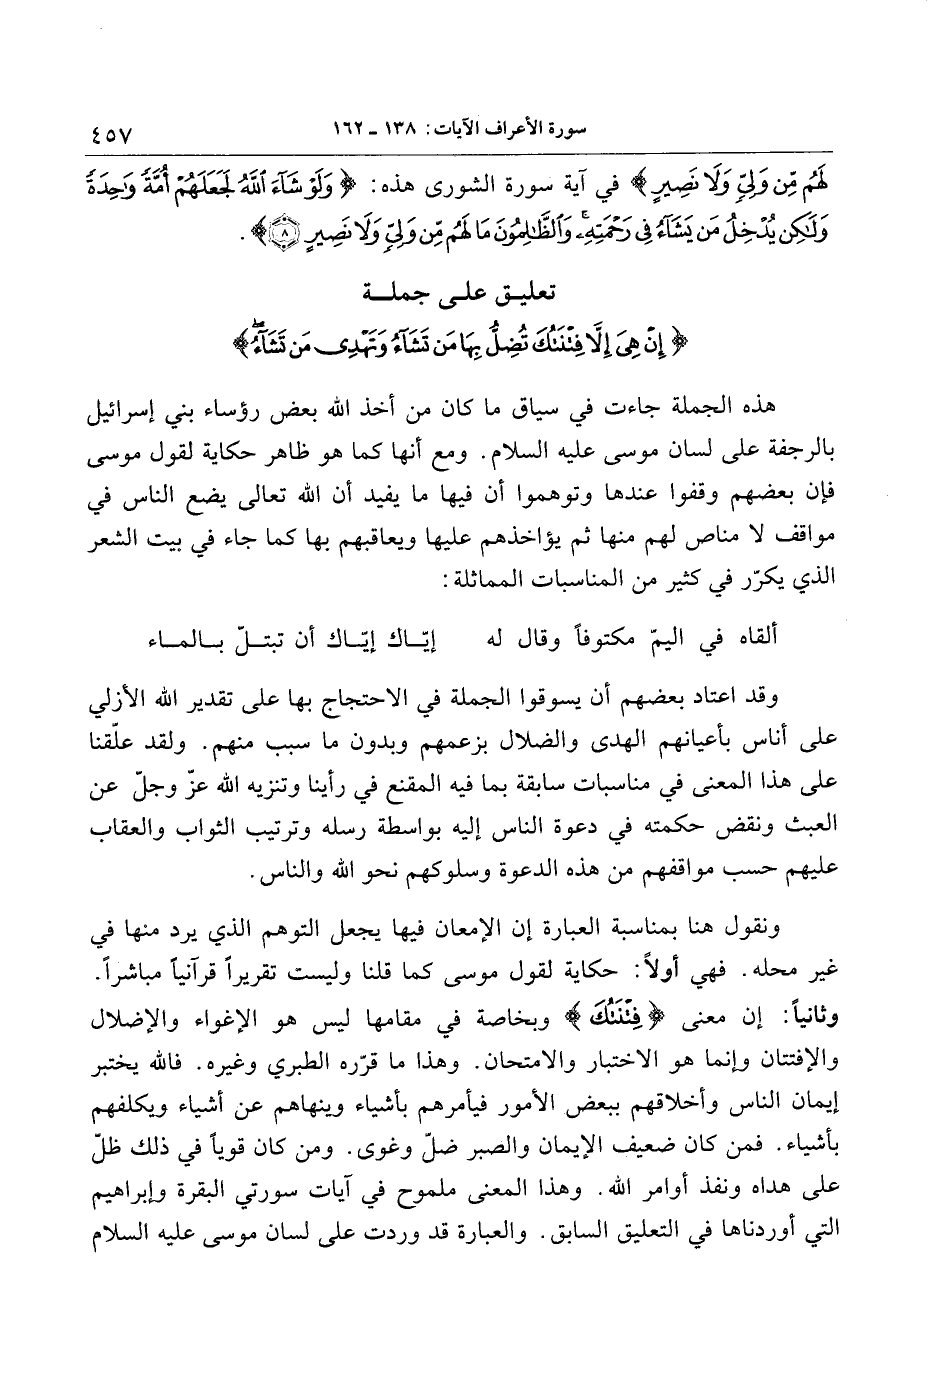 سورة الأعراف الآيات: ١٣٨ ـ ١٦٢ ٤٥٧
لَهُم مِّن وَلِيٍّ وَلَا نَصِيرٍ﴾ في آية سورة الشورى هذه: ﴿وَلَوْ شَآءَ ٱللَّهُ لَجَعَلَهُمْ أُمَّةً وَٰحِدَةً
وَلَٰكِن يُدْخِلُ مَن يَشَآءُ فِى رَحْمَتِهِۦۚ وَٱلظَّٰلِمُونَ مَا لَهُم مِّن وَلِيٍّ وَلَا نَصِيرٍ ٨﴾.
تعليق على جملة
﴿إِنْ هِىَ إِلَّا فِتْنَتُكَ تُضِلُّ بِهَا مَن تَشَآءُ وَتَهْدِى مَن تَشَآءُۖ﴾
هذه الجملة جاءت في سياق ما كان من أخذ الله بعض رؤساء بني إسرائيل
بالرجفة على لسان موسى عليه السلام. ومع أنها كما هو ظاهر حكاية لقول موسى
فإن بعضهم وقفوا عندها وتوهموا أن فيها ما يفيد أن الله تعالى يضع الناس في
مواقف لا مناص لهم منها ثم يؤاخذهم عليها ويعاقبهم بها كما جاء في بيت الشعر
الذي يكرّر في كثير من المناسبات المماثلة:
ألقاه في اليمّ مكتوفاً وقال له إيّاك إيّاك أن تبتلّ بالماء
وقد اعتاد بعضهم أن يسوقوا الجملة في الاحتجاج بها على تقدير الله الأزلي
على أناس بأعيانهم الهدى والضلال بزعمهم وبدون ما سبب منهم. ولقد علّقنا
على هذا المعنى في مناسبات سابقة بما فيه المقنع في رأينا وتنزيه الله عزّ وجلّ عن
العبث ونقض حكمته في دعوة الناس إليه بواسطة رسله وترتيب الثواب والعقاب
عليهم حسب مواقفهم من هذه الدعوة وسلوكهم نحو الله والناس.
ونقول هنا بمناسبة العبارة إن الإمعان فيها يجعل التوهم الذي يرد منها في
غير محله. فهي أولاً: حكاية لقول موسى كما قلنا وليست تقريراً قرآنياً مباشراً.
وثانياً: إن معنى ﴿فِتْنَتُكَ﴾ وبخاصة في مقامها ليس هو الإغواء والإضلال
والإفتتان وإنما هو الاختبار والامتحان. وهذا ما قرّره الطبري وغيره. فالله يختبر
إيمان الناس وأخلاقهم ببعض الأمور فيأمرهم بأشياء وينهاهم عن أشياء ويكلفهم
بأشياء. فمن كان ضعيف الإيمان والصبر ضلّ وغوى. ومن كان قوياً في ذلك ظلّ
على هداه ونفذ أوامر الله. وهذا المعنى ملموح في آيات سورتي البقرة وإبراهيم
التي أوردناها في التعليق السابق. والعبارة قد وردت على لسان موسى عليه السلام